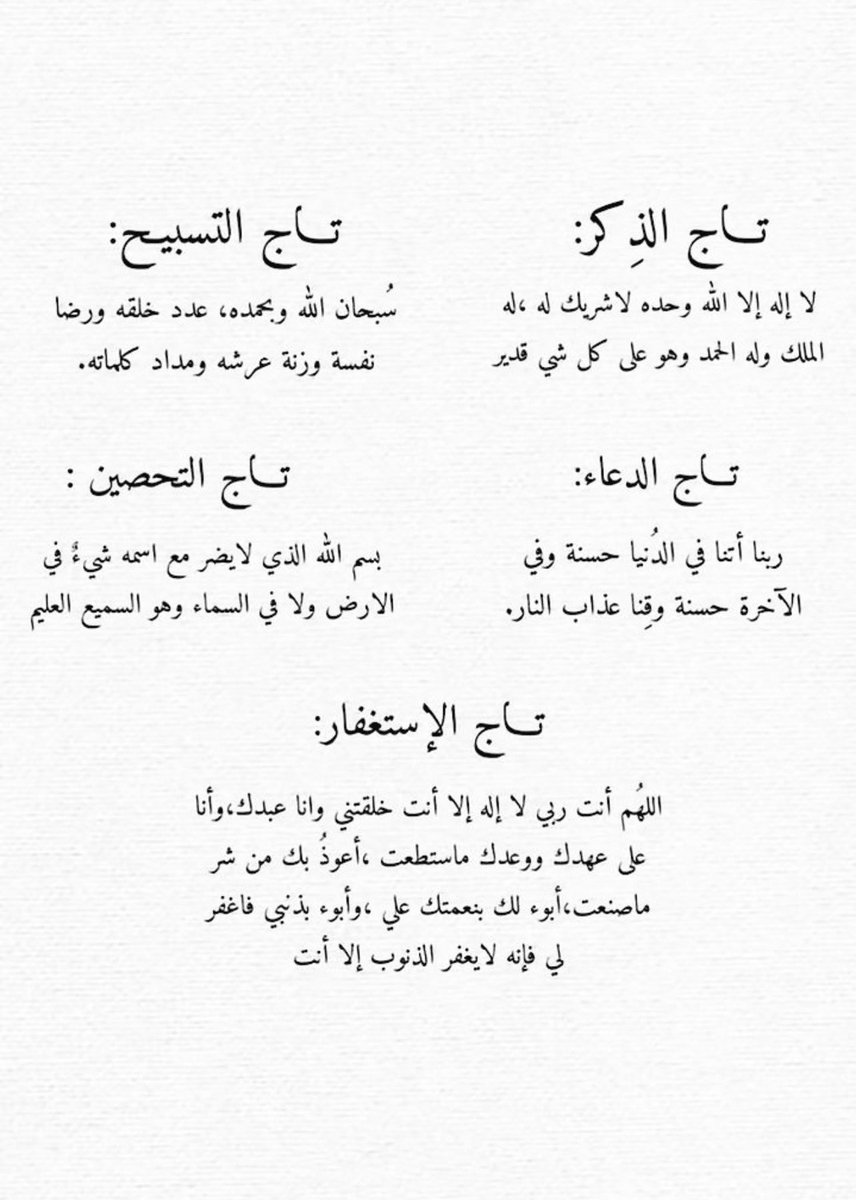 تـــاج الذِكر:
لا إله إلا الله وحده لاشريك له ،له
الملك وله الحمد وهو على كل شي قدير
تـــاج التسبيـح:
سُبحان الله وبحمده، عدد خلقه ورضا
نفسة وزنة عرشه ومداد كلماته.
تـــاج الدعاء:
ربنا أتنا في الدُنيا حسنة وفي
الآخرة حسنة وقِنا عذاب النار.
تـــاج التحصين :
بسم الله الذي لايضر مع اسمه شيءٌ في
الارض ولا في السماء وهو السميع العليم
تـــاج الإستغفار:
اللهُم أنت ربي لا إله إلا أنت خلقتني وانا عبدك،وأنا
على عهدك ووعدك ماستطعت ،أعوذُ بك من شر
ماصنعت،أبوء لك بنعمتك علي ،وأبوء بذنبي فاغفر
لي فإنه لايغفر الذنوب إلا أنت